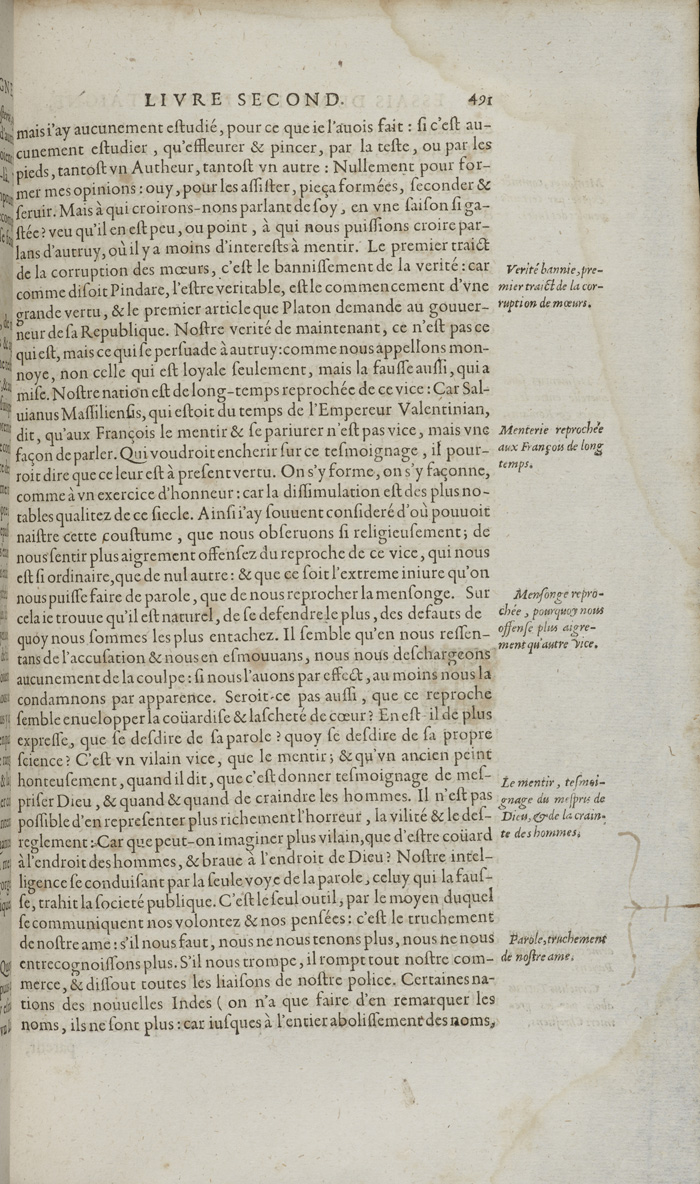 LIVRE SECOND. 491
mais i'ay aucunement eſtudié, pour ce que ie l'auois fait : ſi c'eſt au-
cunement eſtudier , qu'effleurer & pincer, par la teſte, ou par les
pieds, tantoſt vn Autheur, tantoſt vn autre : Nullement pour for-
mer mes opinions : ouy, pour les aſſiſter, pieça formées, ſeconder &
ſeruir. Mais à qui croirons-nons parlant de ſoy, en vne ſaiſon ſi ga-
ſtée? veu qu'il en eſt peu, ou point , à qui nous puiſſions croire par-
lans d'autruy, où il y a moins d'intereſts à mentir. Le premier traict
de la corruption des mœurs, c'eſt le banniſſement de la verité : car
comme diſoit Pindare, l'eſtre veritable, eſt le commencement d'vne
grande vertu, & le premier article que Platon demande au gouuer-
neur de ſa Republique. Noſtre verité de maintenant, ce n'eſt pas ce
qui eſt, mais ce qui ſe perſuade à autruy: comme nous appellons mon-
noye, non celle qui eſt loyale ſeulement, mais la fauſſe auſſi, qui a
miſe. Noſtre nation eſt de long-temps reprochée de ce vice : Car Sal-
uianus Maſſilienſis, qui eſtoit du temps de l'Empereur Valentinian,
dit, qu'aux François le mentir & ſe pariurer n'eſt pas vice, mais vne
façon de parler. Qui voudroit encherir ſur ce teſmoignage , il pour-
roit dire que ce leur eſt à preſent vertu. On s'y forme, on s'y façonne,
comme à vn exercice d'honneur : car la diſſimulation eſt des plus no-
tables qualitez de ce ſiecle. Ainſi i'ay ſouuent conſideré d'où pouuoit
naiſtre cette couſtume , que nous obſeruons ſi religieuſement ; de
nous ſentir plus aigrement offenſez du reproche de ce vice, qui nous
eſt ſi ordinaire, que de nul autre : & que ce ſoit l'extreme iniure qu'on
nous puiſſe faire de parole, que de nous reprocher la menſonge. Sur
cela ie trouue qu'il eſt naturel, de ſe defendre le plus, des defauts de
quoy nous ſommes les plus entachez. Il ſemble qu'en nous reſſen-
tans de l'accuſation & nous en eſmouuans, nous nous deſchargeons
aucunement de la coulpe : ſi nous l'auons par effect, au moins nous la
condamnons par apparence. Seroit-ce pas auſſi , que ce reproche
ſemble enuelopper la coüardiſe & laſcheté de cœur? En eſt-il de plus
expreſſe, que ſe deſdire de ſa parole ? quoy ſe deſdire de ſa propre
ſcience ? C'eſt vn vilain vice, que le mentir ; & qu'vn ancien peint
honteuſement, quand il dit, que c'eſt donner teſmoignage de meſ-
priſer Dieu , & quand & quand de craindre les hommes. Il n'eſt pas
poſſible d'en repreſenter plus richement l'horreur , la vilité & le deſ-
reglement : Car que peut-on imaginer plus vilain, que d'eſtre coüard
à l'endroit des hommes, & braue à l'endroit de Dieu? Noſtre intel-
ligence ſe conduiſant par la ſeule voye de la parole, celuy qui la fauſ-
ſe, trahit la societé publique. C'eſt le ſeul outil, par le moyen duquel
ſe communiquent nos volontez & nos penſées : c'eſt le truchement
de noſtre ame : s'il nous faut, nous ne nous tenons plus, nous ne nous
entrecognoiſſons plus. S'il nous trompe, il rompt tout noſtre com-
merce, & diſſout toutes les liaiſons de noſtre police. Certaines na-
tions des nouuelles Indes ( on n'a que faire d'en remarquer les
noms, ils ne ſont plus : car iuſques à l'entier aboliſſement des noms,
Verité bannie, pre-
mier traict de la cor-
ruption de mœurs.
Menterie reprochée
aux François de long
temps.
Menſonge repro-
chée, pourquoy nous
offenſe plus aigre-
ment qu'autre vice.
Le mentir, teſmoi-
gnage du meſpris de
Dieu, & de la crain-
te des hommes.
Parole, truchement
de noſtre ame.